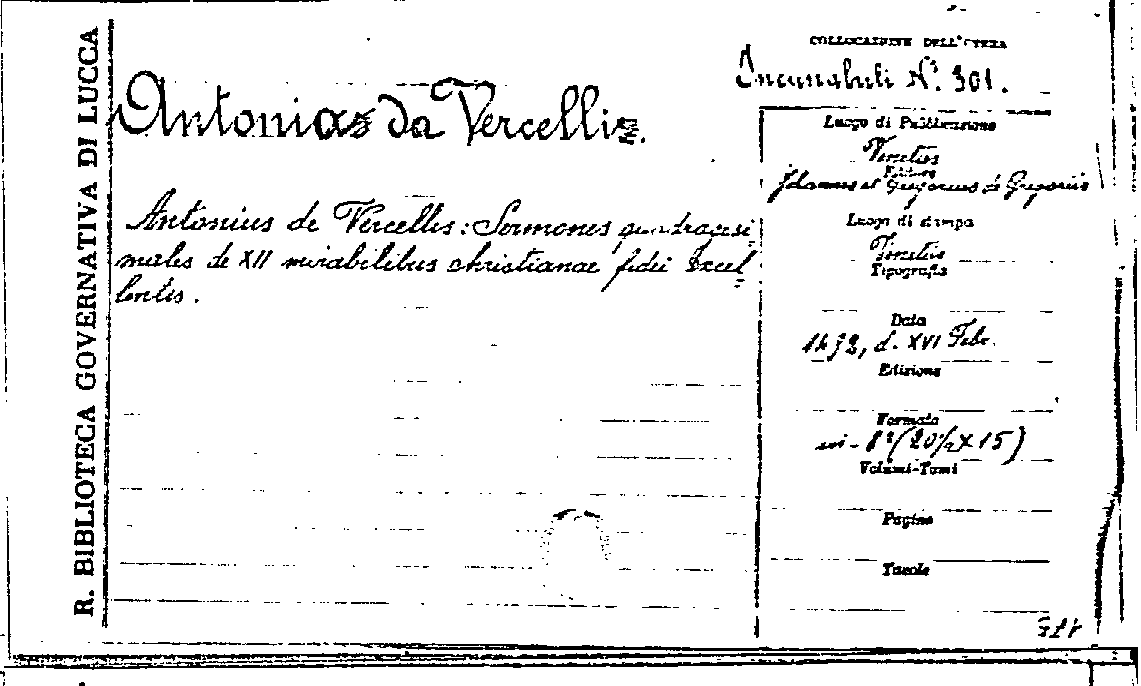 R. BIBLIOTECA GOVERNATIVA DI LUCCA
COLLOCAZIONE DELL'OPERA
Incunabuli N.° 301.
Antonius da Vercellis.
Antonius de Vercellis: Sermones quadragesi-
males de XII mirabilibus christianae fidei Excel-
lentis.
Luogo di Pubblicazione
Venetiis
Editore
Johannes et Gregorius de Gregoriis
Luogo di stampa
Venetiis
Tipografia
Data
1492, d. XVI Febr.
Edizione
Formato
in-8° (20½ X 15)
Volumi-Tomi
Pagine
Tavole